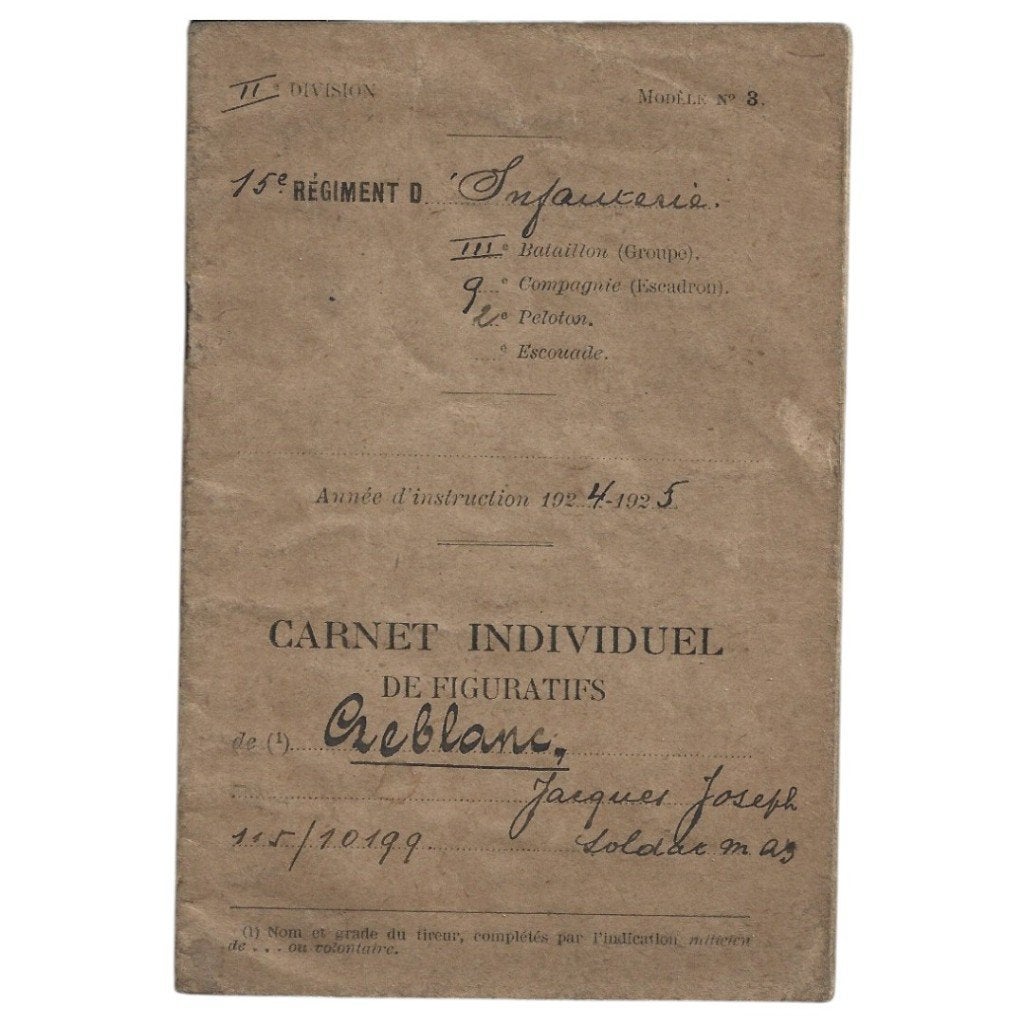 IIe DIVISION MODÈLE No 3.
15e RÉGIMENT D'Infanterie.
IIIe Bataillon (Groupe).
9e Compagnie (Escadron).
2e Peloton.
e Escouade.
Année d'instruction 1924-1925
CARNET INDIVIDUEL
DE FIGURATIFS
de (1)
Jacques Joseph
115/10199 Soldat m
(1) Nom et grade du tireur, complétés par l'indication milicien
de ... ou volontaire.